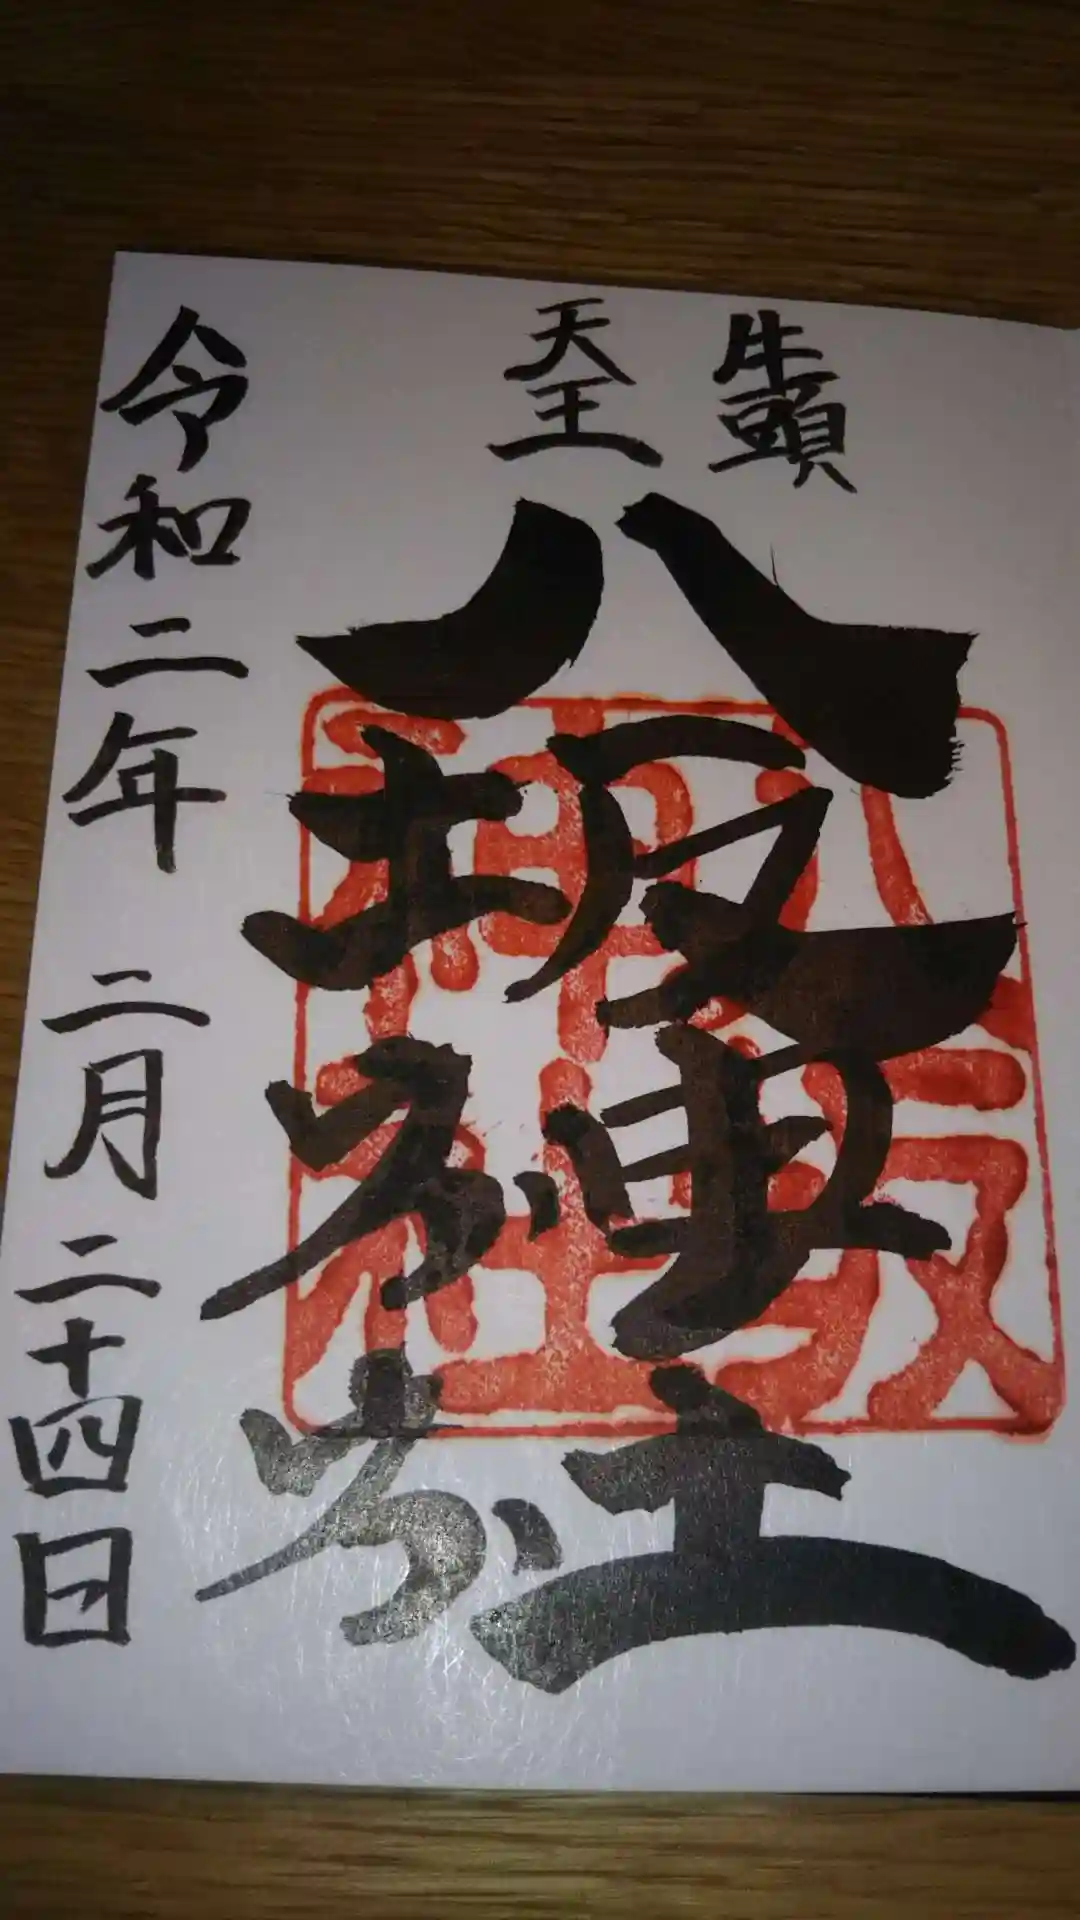 牛頭
天王
八坂神社
八坂
神社
令和二年 二月 二十四日